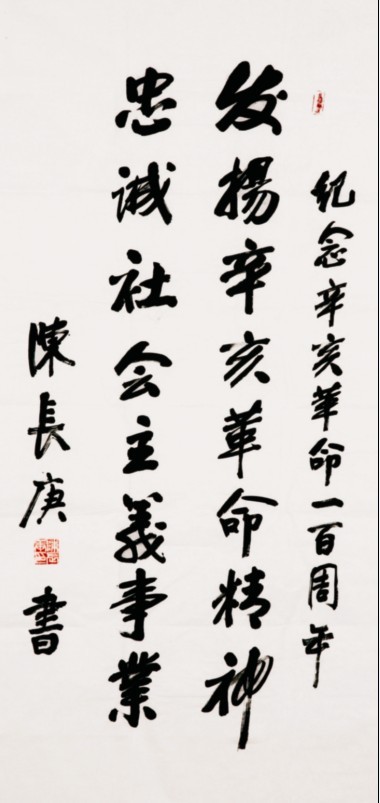 纪念辛亥革命一百周年
发揚辛亥革命精神
忠诚社会主義事業
陳長庚書